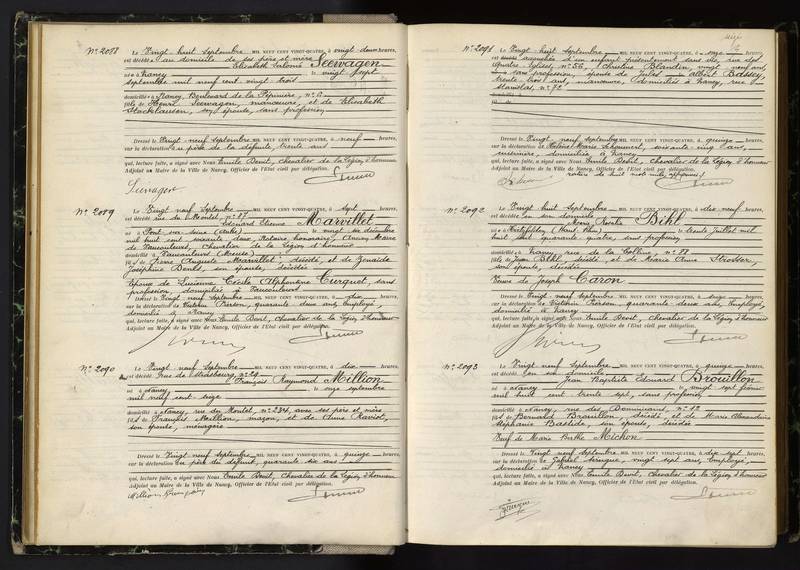 N° 2088
Le Vingt huit Septembre MIL NEUF CENT VINGT-QUATRE, à vingt deux heures,
est décédée au domicile de ses père et mère
Elisabeth Salomé Seewagen
née à Nancy le vingt sept
septembre mil neuf cent vingt trois
domiciliée à Nancy, Boulevard de la Pépinière, n° 6
fille de Henri Seewagen, manœuvre, et de Elisabeth
son épouse, sans profession
Dressé le Vingt neuf Septembre MIL NEUF CENT VINGT-QUATRE, à neuf heures,
sur la déclaration du père de la défunte, trente ans
qui, lecture faite, a signé avec Nous Emile Benit, Chevalier de la Légion d'honneur
Adjoint au Maire de la Ville de Nancy, Officier de l'Etat civil par délégation.
Seewagen
N° 2089
Le Vingt neuf Septembre MIL NEUF CENT VINGT-QUATRE, à sept heures,
est décédé rue du Montet, n° 87
Etienne Marvillet
né à Pont sur Seine (Aube) le vingt six décembre
mil huit cent soixante deux, Notaire honoraire, Ancien Maire
de Vaucouleurs, Chevalier de la Légion d'honneur
domicilié à Vaucouleurs (Meuse)
fils de Pierre Auguste Marvillet, décédé, et de Zénaïde
Joséphine son épouse, décédée
Epoux de Lucienne Cécile Alphonsine Curquet, sans
profession, domiciliée à Vaucouleurs
Dressé le Vingt neuf Septembre MIL NEUF CENT VINGT-QUATRE, à dix heures,
sur la déclaration de Victorin Pierson, quarante deux ans, Employé,
domicilié à Nancy
qui, lecture faite, a signé avec Nous Emile Benit, Chevalier de la Légion d'honneur
Adjoint au Maire de la Ville de Nancy, Officier de l'Etat civil par délégation.
N° 2090
Le Vingt neuf Septembre MIL NEUF CENT VINGT-QUATRE, à dix heures,
est décédé rue de Strasbourg, n° 29
François Raymond Million
né à Nancy le onze septembre
mil neuf cent seize
domicilié à Nancy, rue du Montet, n° 234, avec ses père et mère
fils de François Million, maçon, et de Anne Raviol,
son épouse, ménagère
Dressé le Vingt neuf Septembre MIL NEUF CENT VINGT-QUATRE, à quinze heures,
sur la déclaration du père du défunt, quarante six ans
qui, lecture faite, a signé avec Nous Emile Benit, Chevalier de la Légion d'honneur
Adjoint au Maire de la Ville de Nancy, Officier de l'Etat civil par délégation.
Million François
N° 2091
Le Vingt huit Septembre MIL NEUF CENT VINGT-QUATRE, à onze heures,
est accouchée d'un enfant présentement sans vie, rue des
Quatre Eglises, n° 56, Christine Blandin, vingt neuf ans,
sans profession, épouse de Jules Albert Bassey,
trente trois ans, manœuvre, domiciliés à Nancy, rue
Stanislas, n° 72
Dressé le Vingt neuf Septembre MIL NEUF CENT VINGT-QUATRE, à quinze heures,
sur la déclaration de Hélène Marie soixante cinq ans,
domiciliée à Nancy
qui, lecture faite, a signé avec Nous Emile Benit, Chevalier de la Légion d'honneur
Adjoint au Maire de la Ville de Nancy, Officier de l'Etat civil par délégation.
N° 2092
Le Vingt huit Septembre MIL NEUF CENT VINGT-QUATRE, à dix neuf heures,
est décédée en son domicile
Marie Bihl
née à (Haut Rhin) le trente Juillet mil
huit cent quarante quatre, sans profession
domiciliée à Nancy, rue de la Colline, n° 88
fille de Jean Bihl, décédé, et de Marie Anne Strosser,
son épouse, décédée
Veuve de Joseph Caron
Dressé le Vingt neuf Septembre MIL NEUF CENT VINGT-QUATRE, à seize heures,
sur la déclaration de Victorin Pierson, quarante deux ans, Employé,
domicilié à Nancy
qui, lecture faite, a signé avec Nous Emile Benit, Chevalier de la Légion d'honneur
Adjoint au Maire de la Ville de Nancy, Officier de l'Etat civil par délégation.
N° 2093
Le Vingt neuf Septembre MIL NEUF CENT VINGT-QUATRE, à quinze heures,
est décédé en son domicile
Jean Baptiste Edouard Brouillon
né à Nancy le vingt sept février
mil huit cent trente sept, sans profession
domicilié à Nancy, rue des Dominicains, n° 12
fils de Bernard Brouillon, décédé, et de Marie Alexandrine
Stéphanie Bastide, son épouse, décédée
Veuf de Marie Berthe Michon
Dressé le Vingt neuf Septembre MIL NEUF CENT VINGT-QUATRE, à dix sept heures,
sur la déclaration de Gabriel vingt sept ans, Employé,
domicilié à Nancy
qui, lecture faite, a signé avec Nous Emile Benit, Chevalier de la Légion d'honneur
Adjoint au Maire de la Ville de Nancy, Officier de l'Etat civil par délégation.